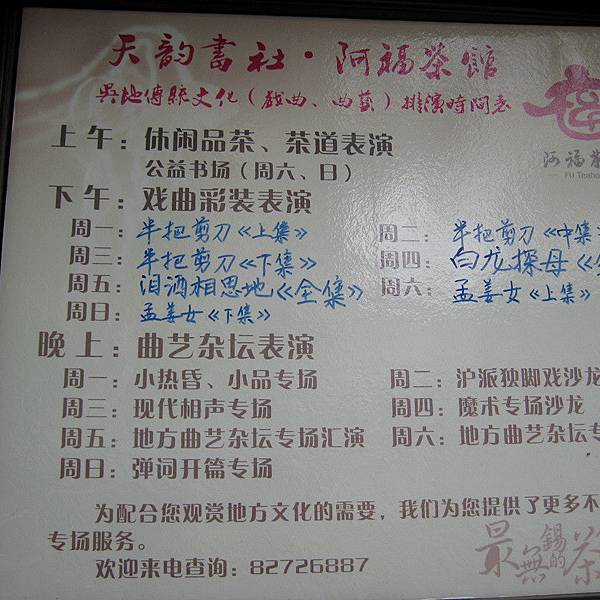 天韵書社·阿福茶館
吳地傳統文化（戲曲、曲藝）排演時間表
阿福茶
FU Teaho
上午：休闲品茶、茶道表演
公益书场（周六、日）
下午：戏曲彩装表演
周一：半把剪刀《上集》 周二：半把剪刀《中集》
周三：半把剪刀《下集》 周四：白龙探母《
周五：泪洒相思地《全集》 周六：孟姜女《上集》
周日：孟姜女《下集》
晚上：曲艺杂坛表演
周一：小热昏、小品专场 周二：沪派独脚戏沙龙
周三：现代相声专场 周四：魔术专场沙龙
周五：地方曲艺杂坛专场汇演 周六：地方曲艺杂坛专
周日：弹词开篇专场
为配合您观赏地方文化的需要，我们为您提供了更多不
专场服务。
欢迎来电查询：82726887
最無錫的茶